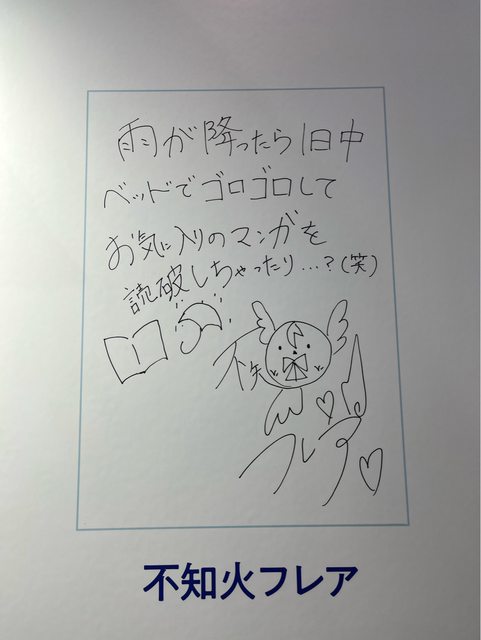 雨が降ったら1日中
ベッドでゴロゴロして
お気に入りのマンガを
読破しちゃったり…?(笑)
不知火
フレア
不知火フレア